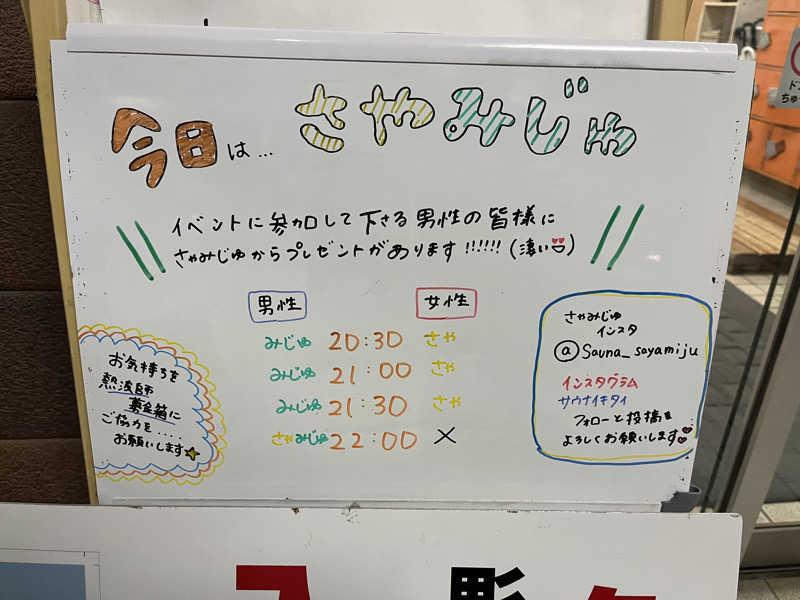 今日は... さやみじゅ
イベントに参加して下さる男性の皆様に
さやみじゅからプレゼントがあります!!!!!! (凄い)
男性 女性
みじゅ 20:30 さや
みじゅ 21:00 さや
みじゅ 21:30 さや
さやみじゅ 22:00 ×
お気持ちを
熱波師
募金箱に
ご協力を....
お願いします
さやみじゅ
インスタ
@Sauna_sayamiju
インスタグラム
サウナイキタイ
フォローと投稿を
よろしくお願いします